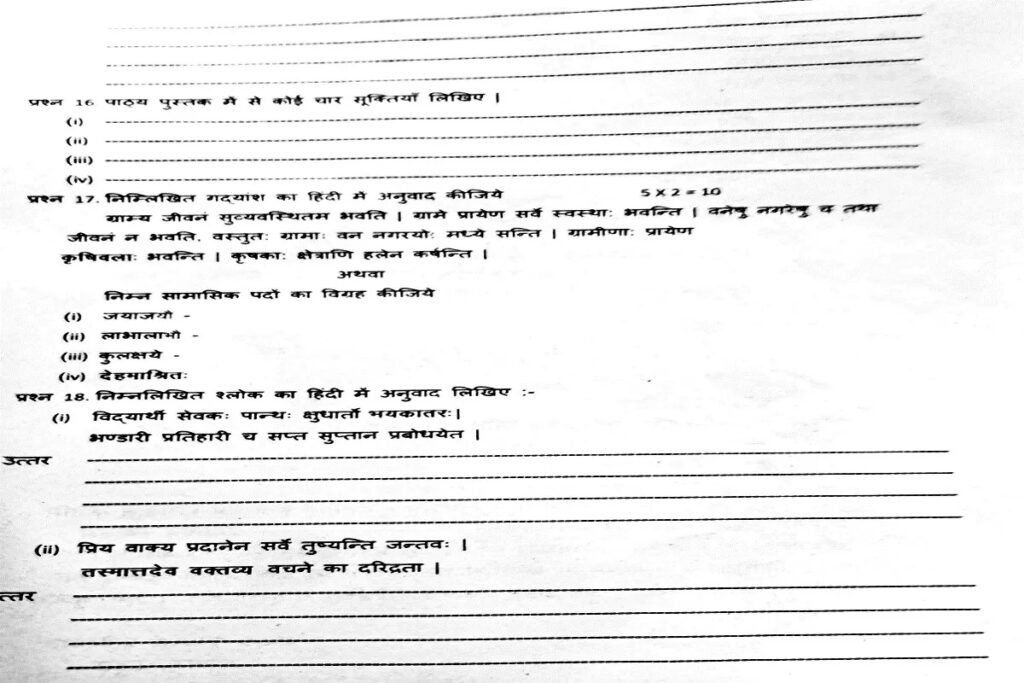 प्रश्न 16 पाठ्य पुस्तक में से कोई चार सूक्तियाँ लिखिए |
(i)
(ii)
(iii)
(iv)
प्रश्न 17. निम्लिखित गद्यांश का हिंदी में अनुवाद कीजिये 5 X 2 = 10
ग्राम्य जीवनं सुव्यवस्थितम भवति | ग्रामे प्रायेण सर्वे स्वस्थाः भवन्ति | वनेषु नगरेषु च तथा
जीवनं न भवति. वस्तुतः ग्रामाः वन नगरयोः मध्ये सन्ति | ग्रामीणाः प्रायेण
कृषिवलाः भवन्ति | कृषकाः क्षेत्राणि हलेन कर्षन्ति |
अथवा
निम्न सामासिक पदों का विग्रह कीजिये
(i) जयाजयौ -
(ii) लाभालाभौ -
(iii) कुलक्षये -
(iv) देहमाश्रितः
प्रश्न 18. निम्नलिखित श्लोक का हिंदी में अनुवाद लिखिए :-
(i) विद्यार्थी सेवकः पान्थः क्षुधार्तो भयकातरः|
भण्डारी प्रतिहारी च सप्त सुप्तान प्रबोधयेत |
उत्तर
(ii) प्रिय वाक्य प्रदानेन सर्वे तुष्यन्ति जन्तवः |
तस्मात्तदेव वक्तव्य वचने का दरिद्रता |
त्तर